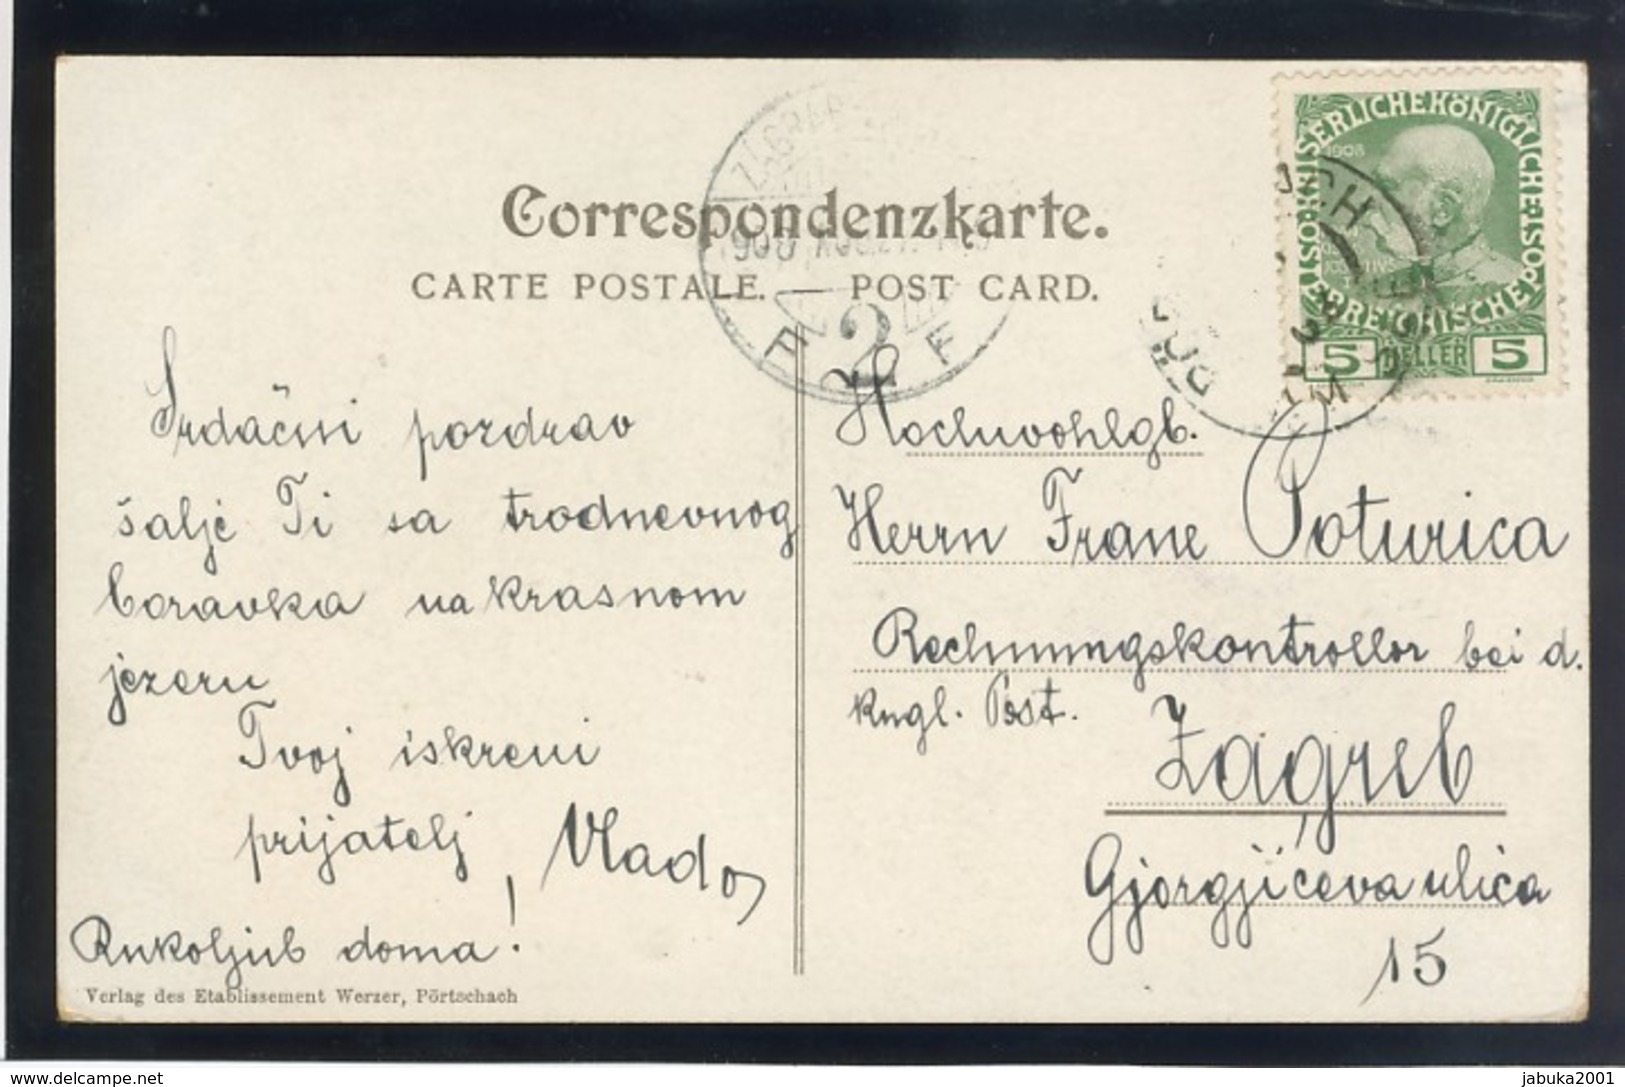 Correspondenzkarte.
CARTE POSTALE. — POST CARD.
ZAGREB
2
F
KAISERLICHE KÖNIGLICHE ÖSTERREICHISCHE POST
1908
5 HELLER 5
Srdačni pozdrav
šalje Ti sa trodnevnog
boravka na krasnom
jezeru
Tvoj iskreni
prijatelj
Vlado
Rukoljub doma!
Verlag des Etablissement Werzer, Pörtschach
Hochwohlgb.
Herrn Frane Poturica
Rechnungskontrollor bei d.
kngl. Post.
Zagreb
Gjorgjićeva ulica
15
delcampe.net
jabuka2001